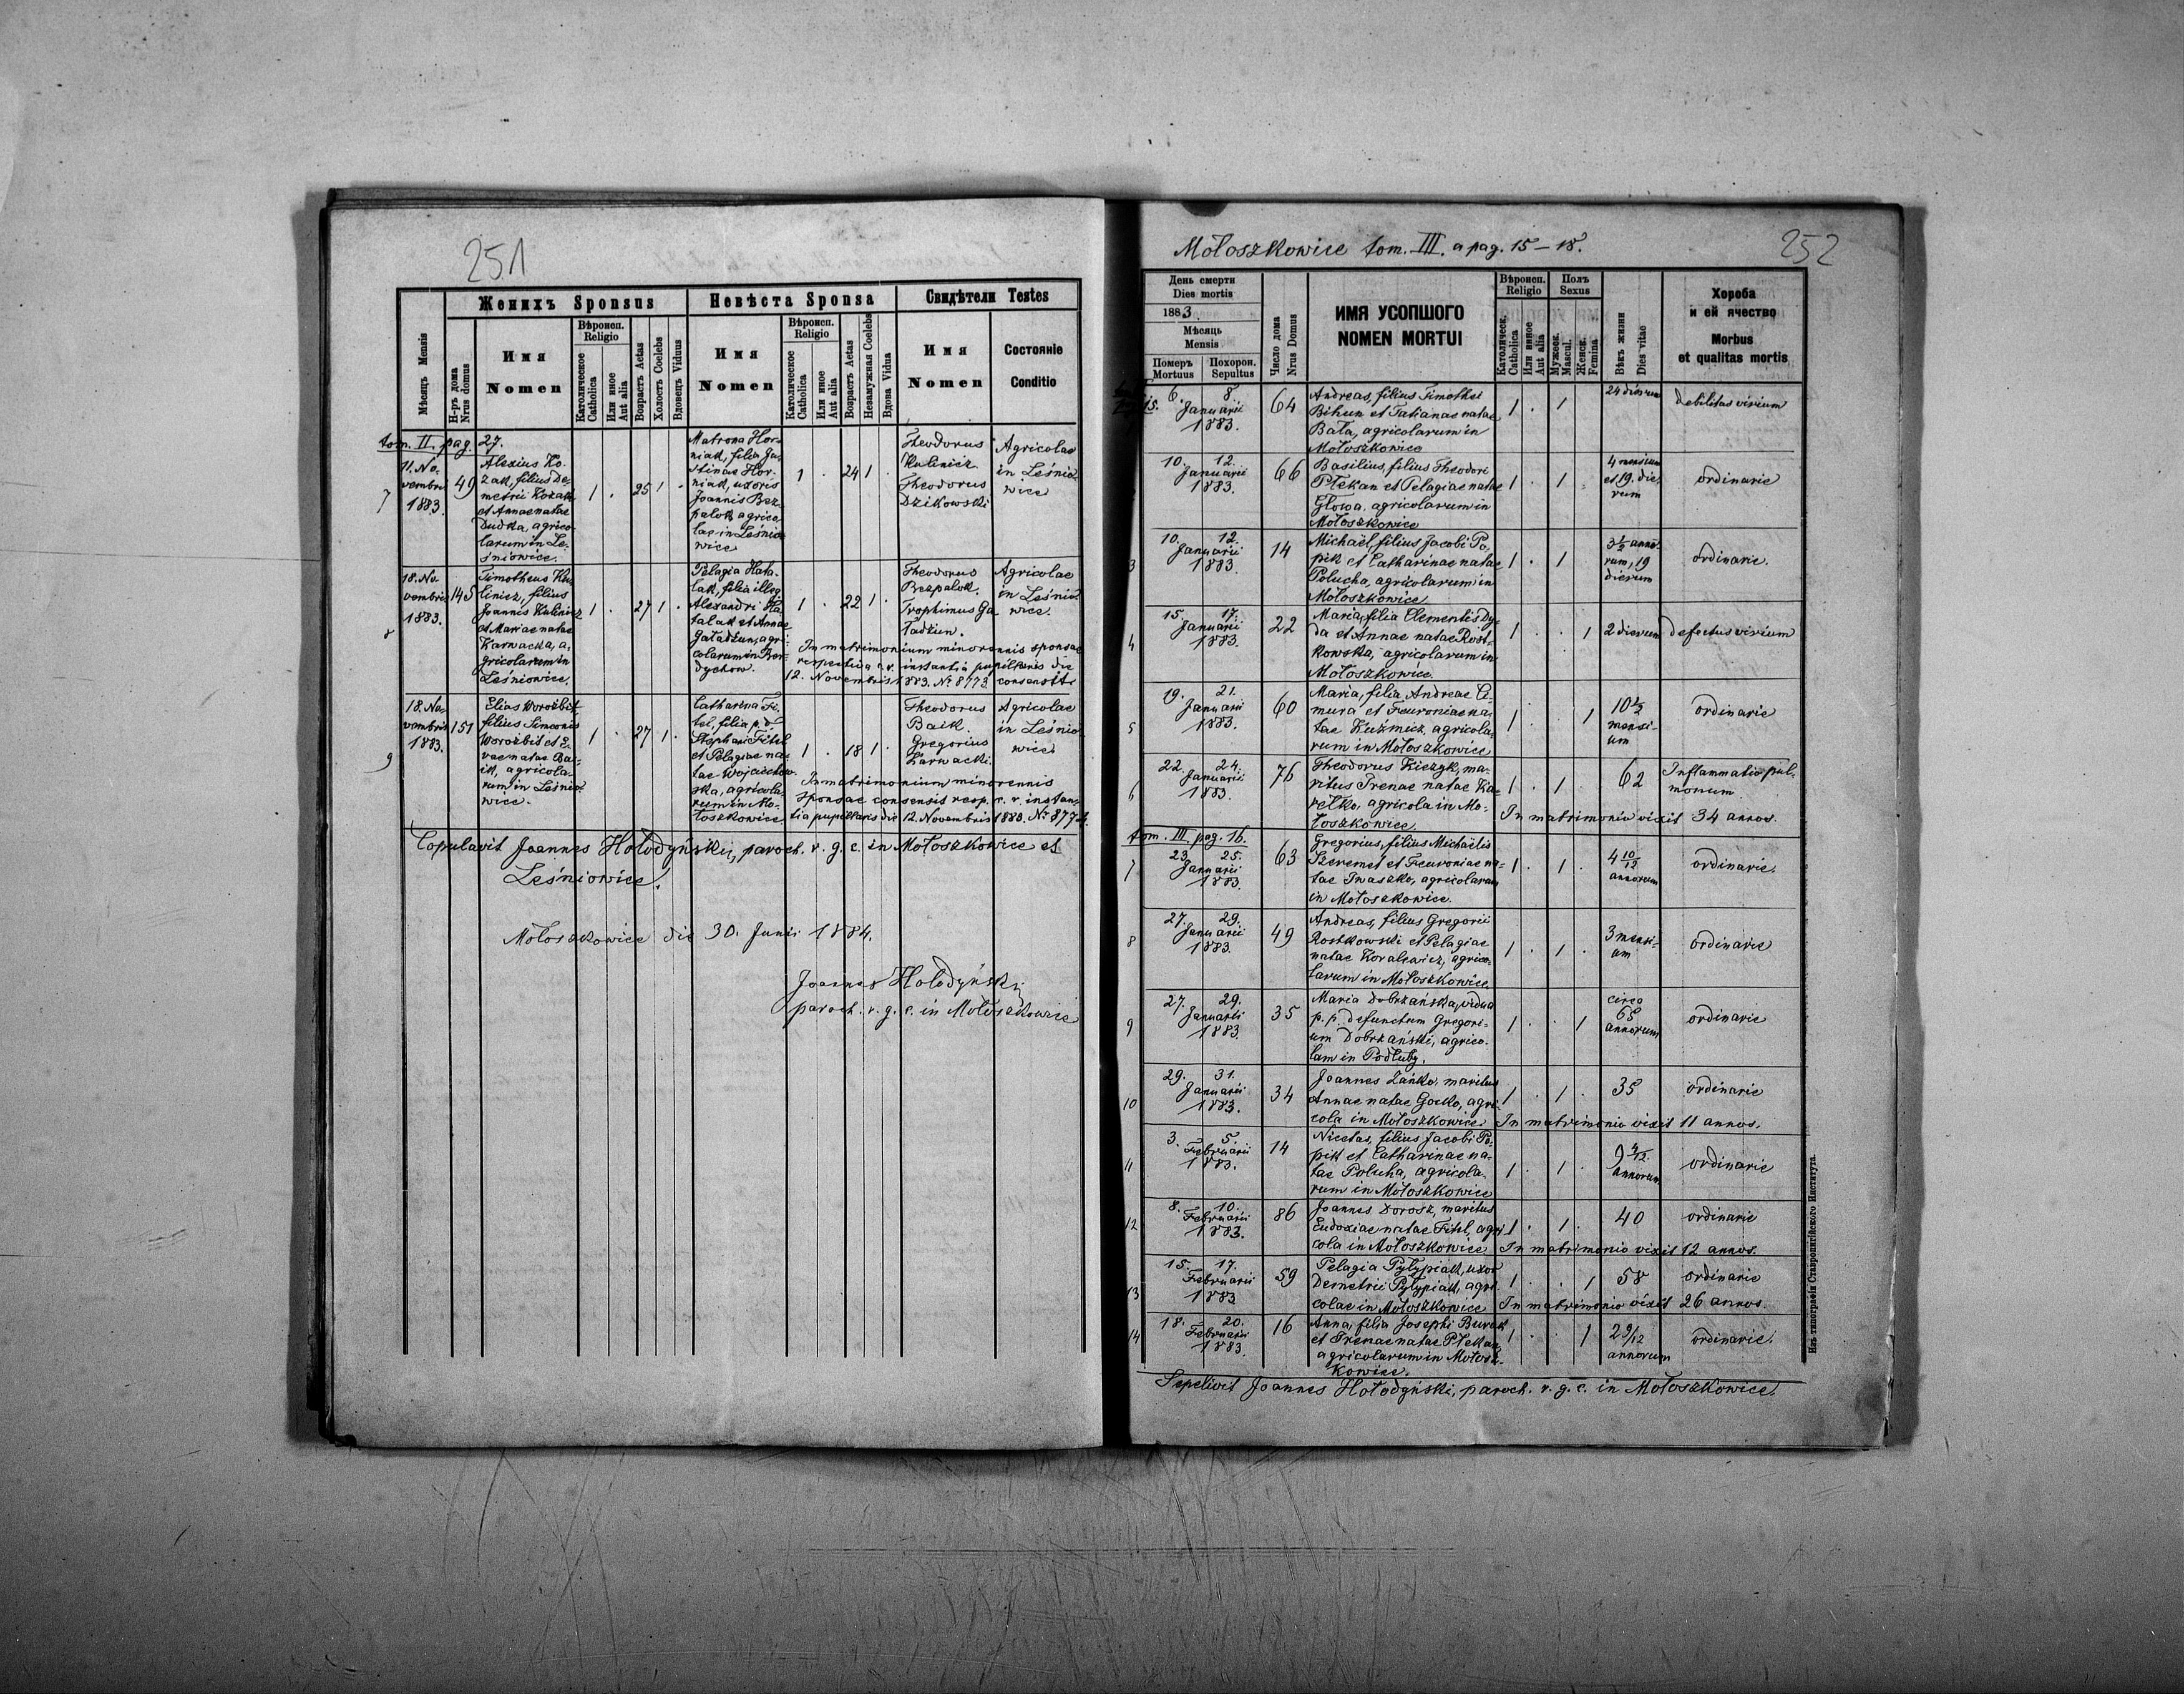 251
Женихъ Sponsus
Невѣста Sponsa
Свидѣтели Testes
Мѣсяцъ Mensis
Н-ръ дома
Nrus domus
Имя
Nomen
Вѣроисп.
Religio
Католическое
Catholica
Или иное
Aut alia
Возрастъ Aetas
Холостъ Coelebs
Вдовецъ Viduus
Имя
Nomen
Вѣроисп.
Religio
Католическое
Catholica
Или иное
Aut alia
Возрастъ Aetas
Незамужная Coelebs
Вдова Vidua
Имя
Nomen
Состояніе
Conditio
tom. II. pag. 27.
7
11. No-
vembris
1883.
49
Alexius Ko-
zak, filius De-
metrii Kozak
et Annae natae
Dudka, agrico-
larum in Le-
śniowice.
1 . 25 1 .
Matrona Hor-
niak, filia Ju-
stinae Hor-
niak, uxoris
Joannis Bez-
palok agrico-
lae in Leśnio-
wice
1 . 24 1 .
Theodorus
Kulinicz
Theodorus
Dzikowski
Agricolae
in Leśnio-
wice
8
18. No-
vembris
1883.
145
Timotheus Ku-
linicz, filius
Joannis Kulinicz
et Mariae natae
Karwacka, a-
gricolarum in
Leśniowice.
1 . 27 1 .
Pelagia Hata-
lak, filia illeg.
Alexandri Ha-
talak et Annae
Gaładżun, agri-
colarum in Ber-
dychow.
1 . 22 1 .
Theodorus
Bezpalok.
Trophimus Ga-
ładżun.
Agricolae
in Leśnio-
wice.
In matrimonium minorennis sponsae
respectiva c. r. instantia pupillaris die
12. Novembris 1883. No 8773 consensit.
9
18. No-
vembris
1883.
151
Elias Worożbit
filius Simeonis
Worożbit et E-
vae natae Ba-
ik, agricola-
rum in Leśnio-
wice.
1 . 27 1 .
Catharina Fi-
tel, filia p. d.
Stephani Fitel
et Pelagiae na-
tae Wojciechow-
ska, agricola-
rum in Mo-
łoszkowice
1 . 18 1 .
Theodorus
Baik.
Gregorius
Karwacki.
Agricolae
in Leśnio-
wice.
In matrimonium minorennis
sponsae consensit resp. c. r. instan-
tia pupillaris die 12. Novembris 1883. No 8774.
Copulavit Joannes Hołodyński, paroch. r. g. c. in Mołoszkowice et
Leśniowice.
Mołoszkowice die 30. Junii 1884.
Joannes Hołodyński
paroch. r. g. c. in Mołoszkowice
Mołoszkowice tom. III. a pag. 15–18.
252
День смерти
Dies mortis
1883.
Мѣсяцъ
Mensis
Померъ
Mortuus
Похорон.
Sepultus
Число дома
Nrus Domus
ИМЯ УСОПШОГО
NOMEN MORTUI
Вѣроисп.
Religio
Католическ.
Catholica
Или инное
Aut alia
Полъ
Sexus
Мужеск.
Mascul.
Женск.
Femina
Вѣкъ жизни
Dies vitae
Хороба
и ей ячество
Morbus
et qualitas mortis
15.
6. 8.
Januarii
1883.
64
Andreas, filius Timothei
Bihun et Tatianae natae
Bała, agricolarum in
Mołoszkowice
1 . 1
24 dierum
debilitas virium
10. 12.
Januarii
1883.
66
Basilius, filius Theodori
Płekan et Pelagiae natae
Głowa, agricolarum in
Mołoszkowice
1 . 1 .
4 mensium
et 19. die-
rum
ordinarie
3
10. 12.
Januarii
1883.
14
Michaël, filius Jacobi Po-
pik et Catharinae natae
Polucha, agricolarum in
Mołoszkowice
1 . 1
3 1/2 anno-
rum, 19
dierum
ordinarie.
4
15. 17.
Januarii
1883.
22
Maria, filia Clementis Dy-
da et Annae natae Rost-
kowska, agricolarum in
Mołoszkowice.
1 . . 1
2 dierum
defectus virium
5
19. 21.
Januarii
1883.
60
Maria, filia Andreae Ci-
mura et Feuroniae na-
tae Kuźmicz, agricola-
rum in Mołoszkowice
1 . 1
10 1/2
mensi-
um
ordinarie
6
22. 24.
Januarii
1883.
76
Theodorus Kiczyk, ma-
ritus Irenae natae Ka-
rełko, agricola in Mo-
łoszkowice.
1 . 1 .
62
Inflammatio pul-
monum
In matrimonio vixit 34 annos.
tom. III. pag. 16.
7
23. 25.
Januarii
1883.
63
Gregorius, filius Michaëlis
Szeremet et Feuroniae na-
tae Iwaszko, agricolarum
in Mołoszkowice.
1 . 1 .
4 10/12
annorum
ordinarie.
8
27. 29.
Januarii
1883.
49
Andreas, filius Gregorii
Rostkowski et Pelagiae
natae Kovalewicz, agrico-
larum in Mołoszkowice
1 . 1 .
3 mensi-
um
ordinarie
9
27. 29.
Januarii
1883.
35
Maria Dobrzańska, vidua
p. p. defunctum Gregori-
um Dobrzański, agrico-
lam in Podłuby.
1 . . 1
circa
65
annorum
ordinarie
10
29. 31.
Januarii
1883.
34
Joannes Zańko, maritus
Annae natae Gocko, agri-
cola in Mołoszkowice
1 . 1 .
35
ordinarie
In matrimonio vixit 11 annos.
11
3. 5.
Februarii
1883.
14
Nicetas, filius Jacobi Po-
pik et Catharinae na-
tae Polucha, agricola-
rum in Mołoszkowice
1 . 1 .
9 4/12
annorum
ordinarie
12
8. 10.
Februarii
1883.
86
Joannes Dorosz, maritus
Eudoxiae natae Fitel, agri-
cola in Mołoszkowice
1 . 1 .
40
ordinarie
In matrimonio vixit 12 annos.
13
15. 17.
Februarii
1883
59
Pelagia Pyłypiak, uxor
Demetrii Pyłypiak, agri-
colae in Mołoszkowice
1 . . 1
58
ordinarie
In matrimonio vixit 26 annos.
14
18. 20.
Februarii
1883.
16
Anna, filia Josephi Burak
et Irenae natae Płekan,
agricolarum in Mołosz-
kowice.
1 . . 1
2 9/12
annorum
ordinarie.
Sepelivit Joannes Hołodyński, paroch. r. g. c. in Mołoszkowice.
Изъ типографіи Ставропигійского Института.